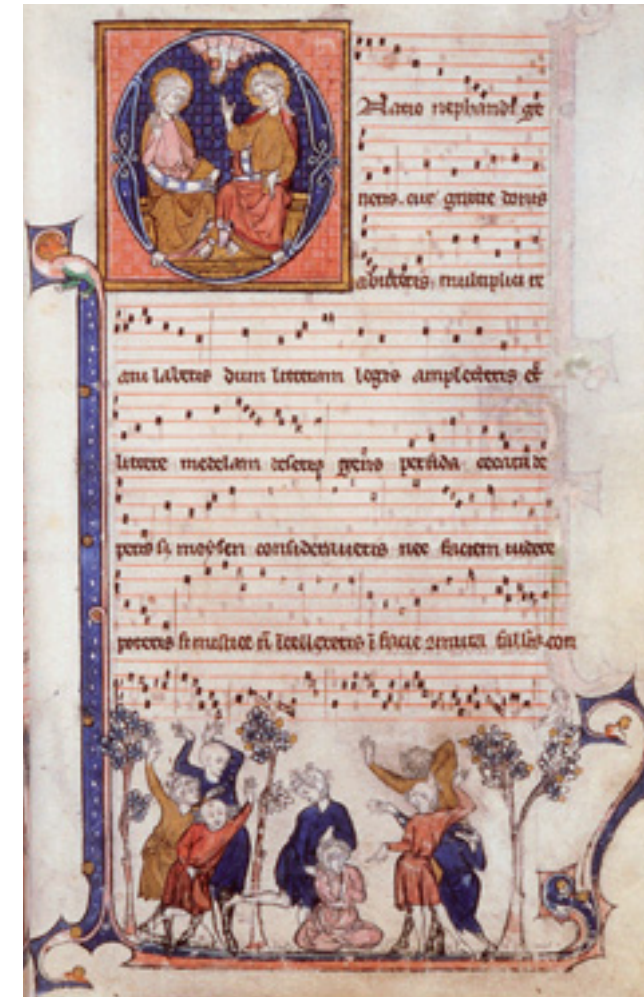 Natio nephandi ge
neris. cur gratie donis
abuteris. multiplicite
atu laberis dum litteram legis amplecteris et
littere medelam deseris gens perfida cecata de
peris si moysen consideraueris nec faciem uidere
poteris si mistice intellexeris facie fallis con